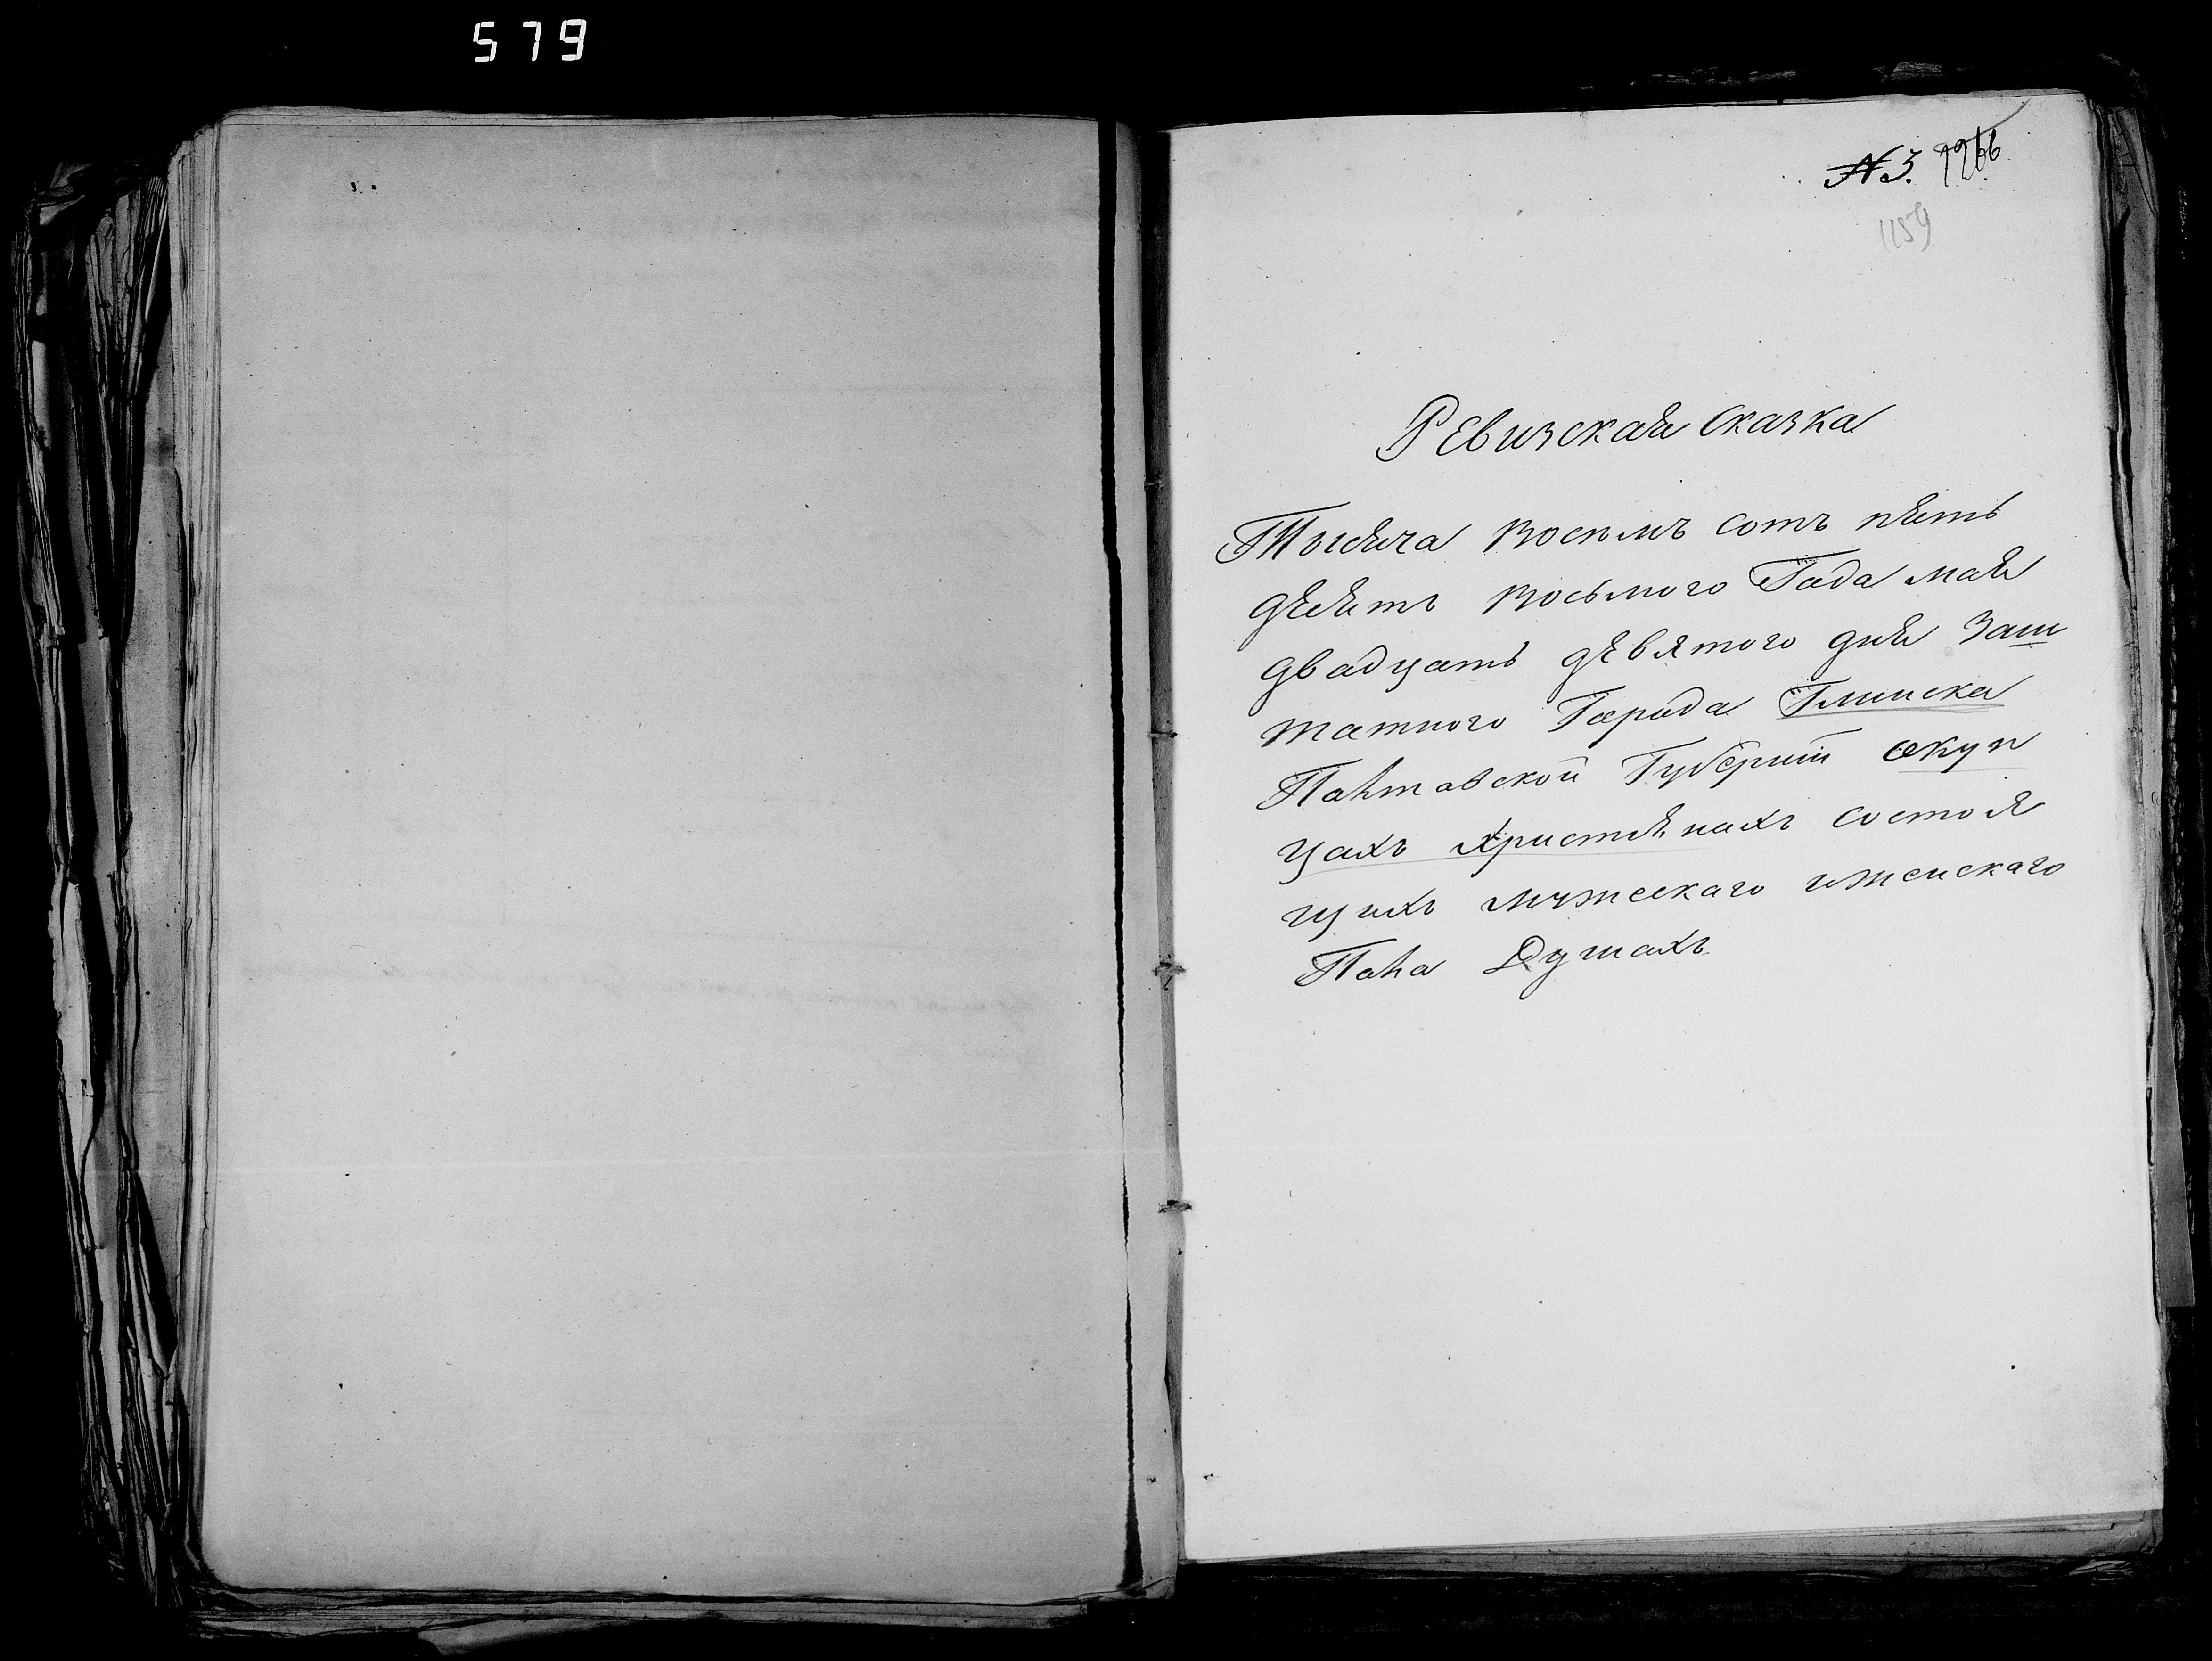 579
№ 3. 1266
1159
Ревизская сказка
Тысяча восемъ сотъ пять
десятъ восьмого Года мая
двадцать девятого дня Заш
татного Города Глинска
Полтавской Губернии окуп
цахъ християнахъ состоя
щихъ мужескаго иженскаго
Пола Душахъ